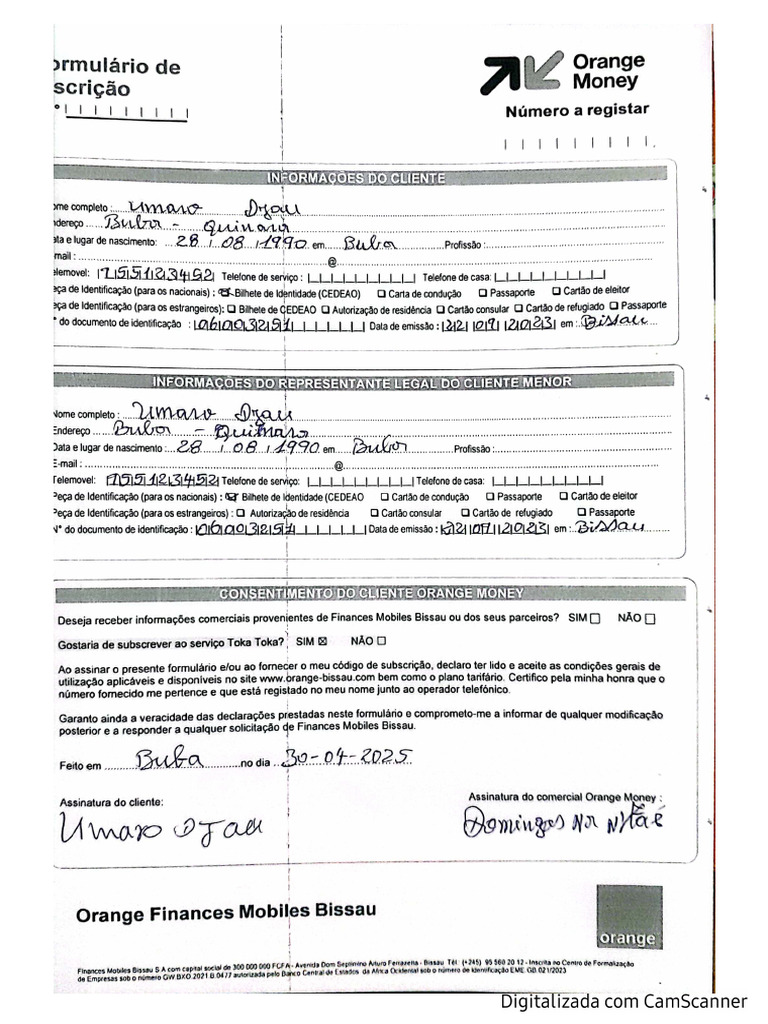 ormulário de
scrição
Orange
Money
Número a registar
INFORMAÇÕES DO CLIENTE
ome completo : Umaro Djau
ndereço Buba - Quinara
ata e lugar de nascimento: 28 08 1990 em Buba Profissão :
mail : @
elemovel: 955123452 Telefone de serviço : Telefone de casa:
eça de Identificação (para os nacionais) : Bilhete de Identidade (CEDEAO) Carta de condução Passaporte Cartão de eleitor
eça de Identificação (para os estrangeiros): Bilhete de CEDEAO Autorização de residência Cartão consular Cartão de refugiado Passaporte
° do documento de identificação : Data de emissão : em : Bissau
INFORMAÇÕES DO REPRESENTANTE LEGAL DO CLIENTE MENOR
Nome completo : Umaro Djau
Endereço Buba - Quinara
Data e lugar de nascimento : 28 08 1990 em Buba Profissão :
E-mail : @
Telemovel: 955123452 Telefone de serviço: Telefone de casa :
Peça de Identificação (para os nacionais) : Bilhete de Identidade (CEDEAO Cartão de condução Passaporte Cartão de eleitor
Peça de Identificação (para os estrangeiros) : Autorização de residência Cartão consular Cartão de refugiado Passaporte
N° do documento de identificação : Data de emissão : em : Bissau
CONSENTIMENTO DO CLIENTE ORANGE MONEY
Deseja receber informações comerciais provenientes de Finances Mobiles Bissau ou dos seus parceiros? SIM NÃO
Gostaria de subscrever ao serviço Toka Toka? SIM ☒ NÃO
Ao assinar o presente formulário e/ou ao fornecer o meu código de subscrição, declaro ter lido e aceite as condições gerais de
utilização aplicáveis e disponíveis no site www.orange-bissau.com bem como o plano tarifário. Certifico pela minha honra que o
número fornecido me pertence e que está registado no meu nome junto ao operador telefónico.
Garanto ainda a veracidade das declarações prestadas neste formulário e comprometo-me a informar de qualquer modificação
posterior e a responder a qualquer solicitação de Finances Mobiles Bissau.
Feito em Buba no dia 30-04-2025
Assinatura do cliente:
Assinatura do comercial Orange Money :
Umaro DJau
Domingos
Orange Finances Mobiles Bissau
orange
Finances Mobiles Bissau S.A com capital social de 300 000 000 FCFA - Avenida Dom Septimino Arturo Ferrazeta - Bissau Tél: (+245) 95 560 20 12 - Inscrita no Centro de Formalização
de Empresas sob o número GW.BXO.2021.B.0477 autorizada pelo Banco Central de Estados da África Ocidental sob o número de Identificação EME.GB.021/2023
Digitalizada com CamScanner